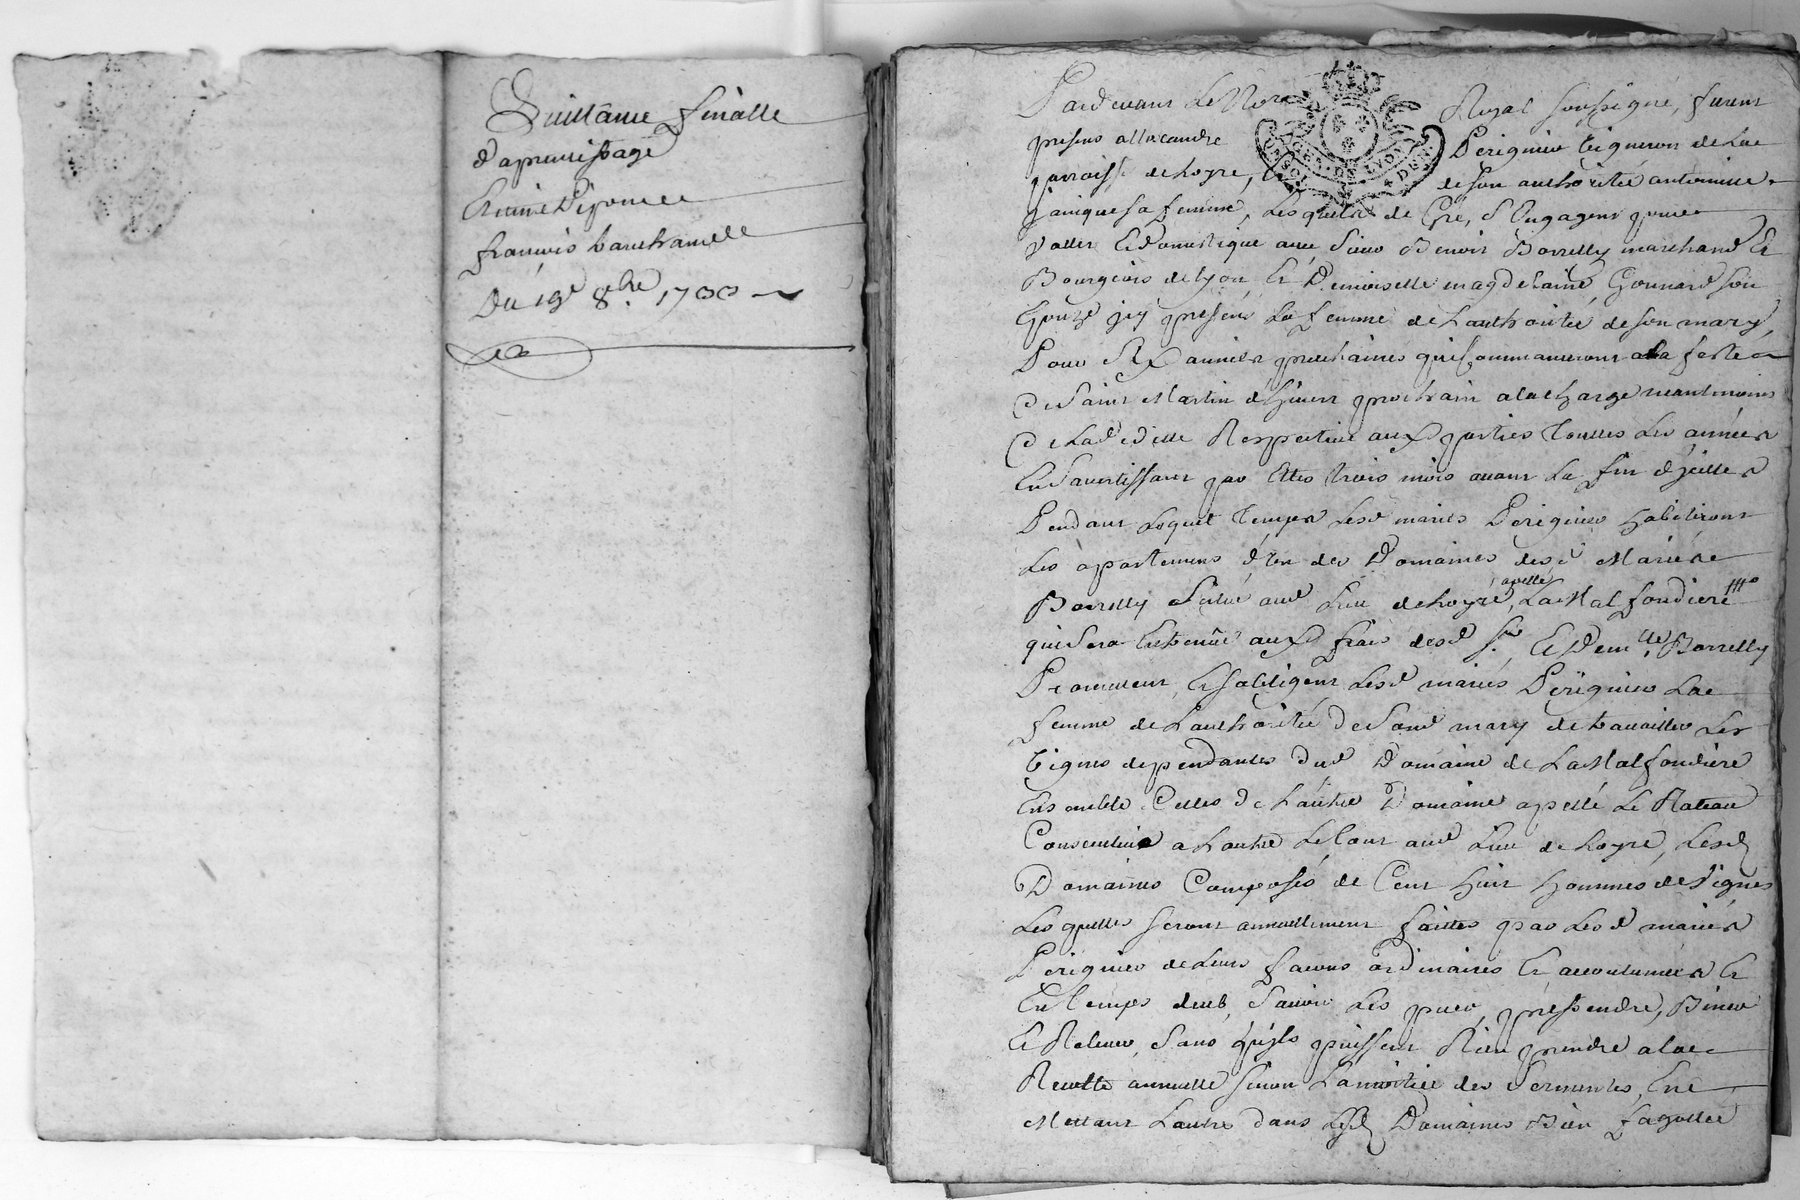 Quittance finalle
d'aprentissage
Etienne
françois
Du 19e 8bre 1733
Pardevant Le Nore Royal soussigné, furent
presens allexandre Perignieu Vigneron de La
parroisse de loyre, Et de son authoritée antoinette
sa femme, Lesquels de Gré, s'Engagent pour
Vallet Et domestique avec sieur Benoit Borrelly marchand Et
Bourgeois de lyon, Et Demoiselle magdelaine Gonnard son
Epouze jcy presens La femme de Lauthoritée de son mary,
Pour six années prochaines qui commanceront a La feste
de saint Martin d'hiver prochain a la charge neantmoins
de La deditte Respective aux parties Touttes Les années
En s'avertissant par Elles trois mois avant La fin d'jcelles
Pendant Lequel temps Lesd mariés Perignieu habiteront
Les apartemens d'un des Domaines desd Mariés
Borrelly situé aud Lieu de loyre, apellé La Malfondiere
qui sera Entretenüe aux frais desd sr Et Demlle Borrelly
Promettent, Et s'obligent Lesd mariés Perignieu La
femme de Lauthoritée de sond mary de travailler Les
Vignes dependantes dud Domaine de La Malfondiere
Ensemble Celles de Lautre Domaine apellé Le Plateau
a Lautre Le tout aud Lieu de loyre, Lesd
Domaines Composés de Cent huit hommes de Vignes
Lesquelles seront annuellement faittes par Lesd mariés
Perignieu de Leurs façons ordinaires Et accoutumées Et
En temps deub, sçavoir Les Biner
Et Relever, sans qu'jls puissent Rien prendre a la
Recolte annuelle sinon La moitiée des serments, En
Mettant Lautre dans Lesd Domaines Bien fagottée